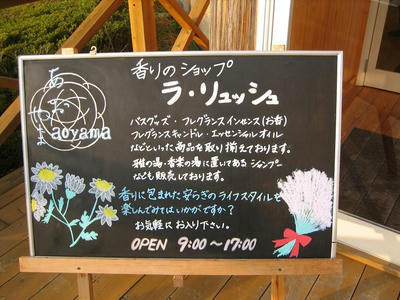 あおやま
aoyama
香りのショップ
ラ・リュッシュ
バスグッズ・フレグランスインセンス(お香)
フレグランスキャンドル・エッセンシャルオイル
などといった商品を取り揃えております。
雅の湯・香楽の湯に置いてあるシャンプー
なども販売しております。
香りに包まれた安らぎのライフスタイルを
楽しんでみてはいかがですか?
お気軽にお入り下さい。
OPEN 9:00~17:00